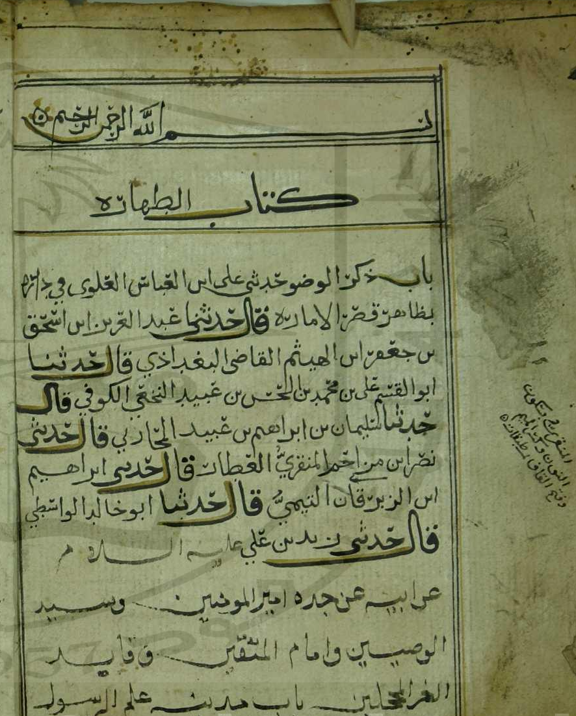 بسم الله الرحمن الرحيم
كتاب الطهارة
باب ذكر الوضو حدثني علي ابن العباس العلوي في داره
بظاهر قصر الاماره قال حدثنا عبد العزيز ابن اسحق
بن جعفر ابن الهيثم القاضي البغدادي قال حدثنا
ابو القسم علي بن محمد بن الحسن بن عبيد النخعي الكوفي قال
حدثنا سليمان بن ابراهيم بن عبيد المحاربي قال حدثني
نصر ابن مزاحم المنقري العطار قال حدثني ابراهيم
ابن الزبرقان التيمي قال حدثنا ابو خالد الواسطي
قال حدثني زيد بن علي عليه السلام
عن ابيه عن جده امير المومنين وسيد
الوصيين وامام المتقين وقايد
الغر المحجلين باب مدينه علم الرسول